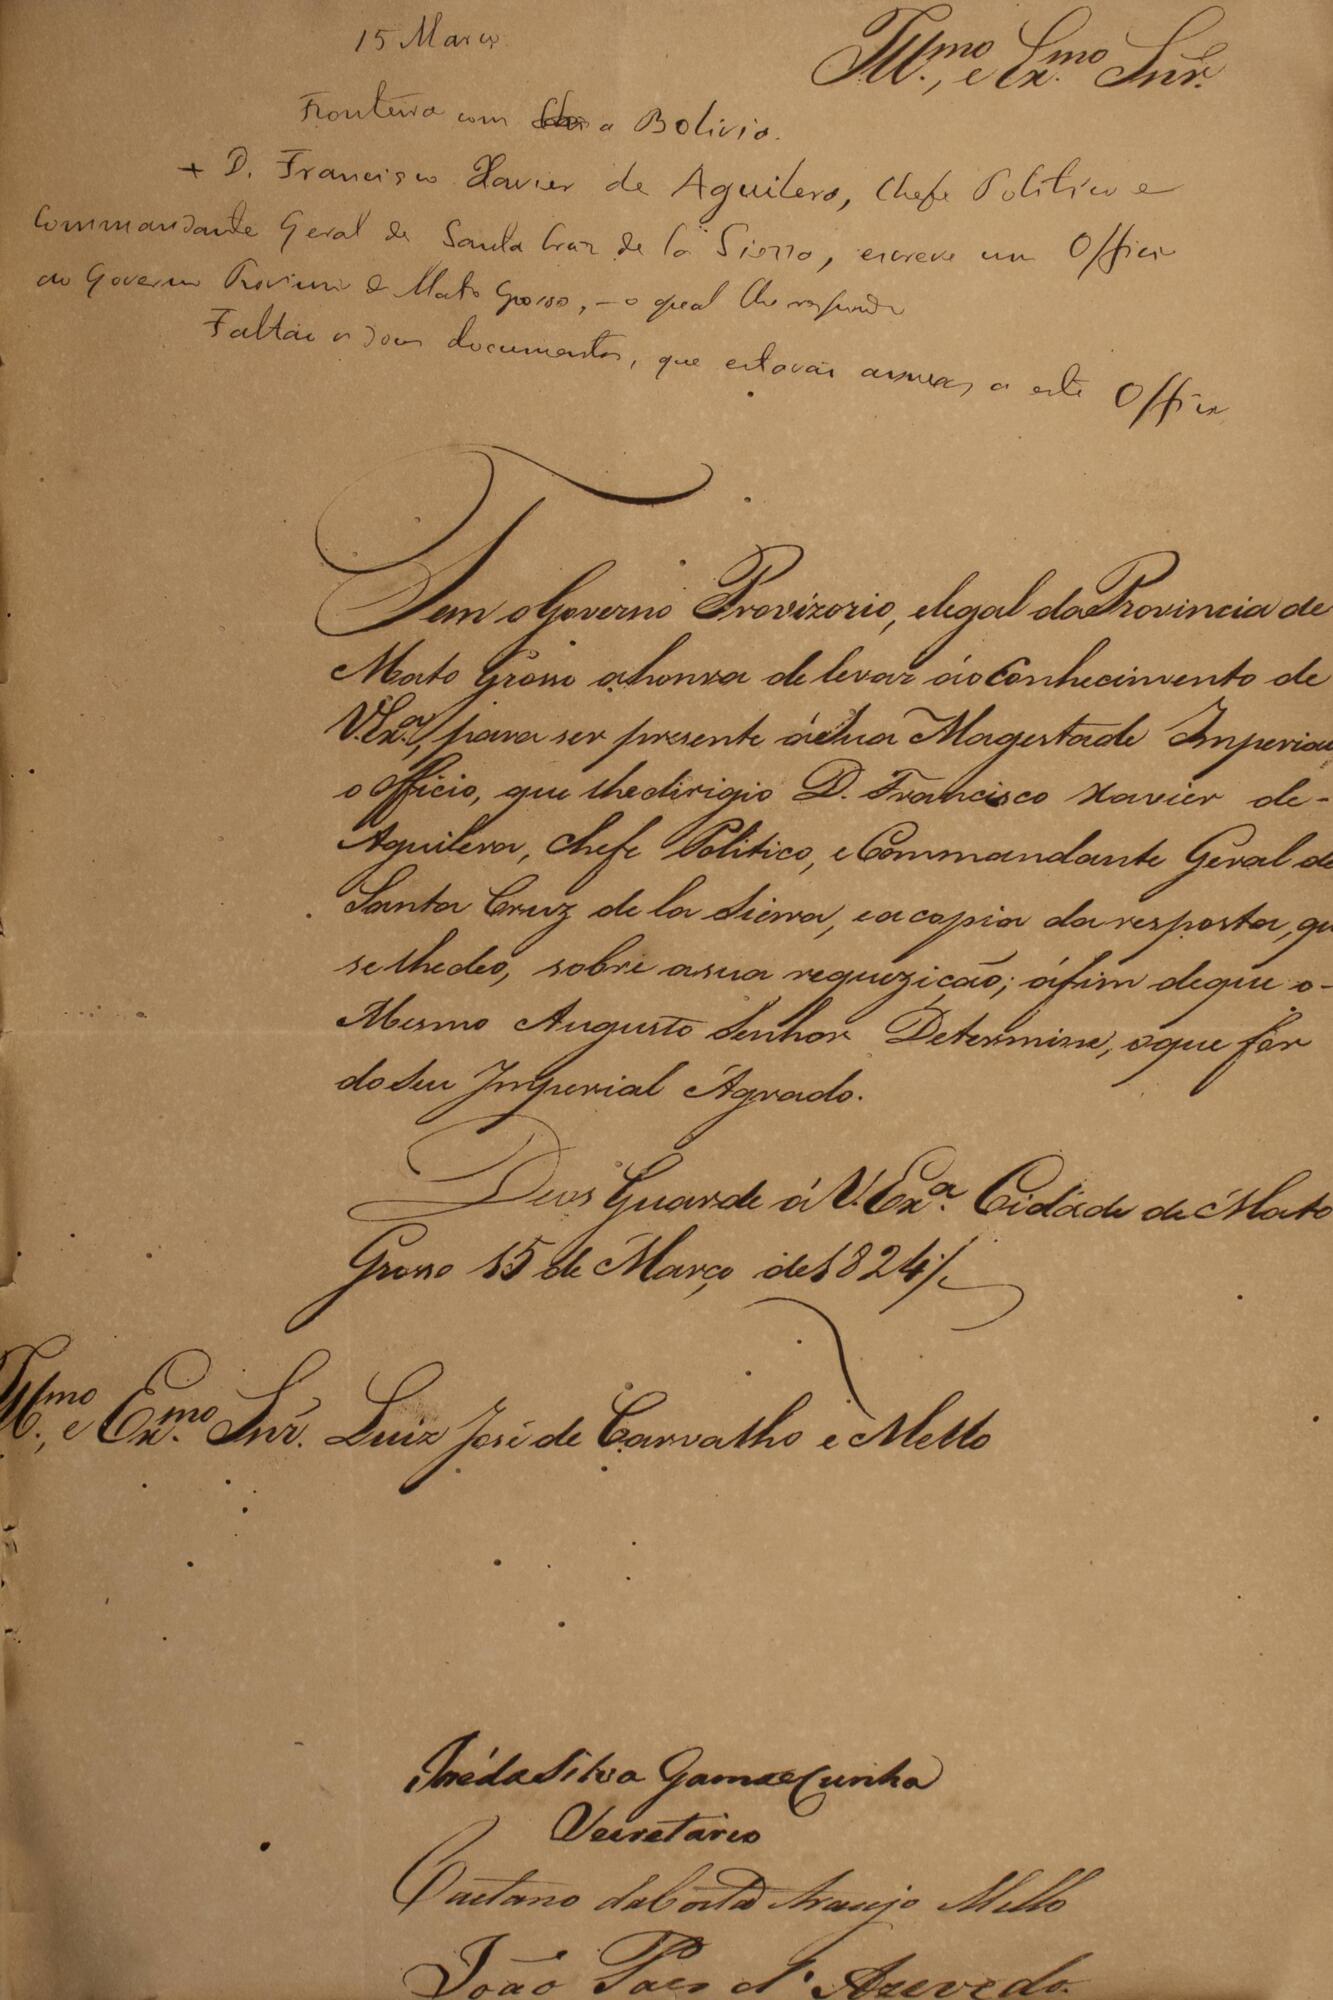 15 Março
Ill.mo, e Ex.mo Snr.
Fronteira com a Bolivia.
+ D. Francisco Xavier de Aguilera, Chefe Politico e
Commandante Geral de Santa Cruz de la Sierra, escreve um Officio
ao Governo Provisorio de Mato Grosso, – o qual lhe responde
Faltão os dous documentos, que estavão annexos a este Officio
Tem o Governo Provizorio, e legal da Provincia de
Mato Grosso a honra de levar áo Conhecimento de
V. Ex.a, para ser presente á Sua Magestade Imperial
o Officio, que lhe dirigio D. Francisco Xavier de-
Aguilera, Chefe Politico, e Commandante Geral de
Santa Cruz de la Sierra, e a copia da resposta, qu
se lhe deo, sobre a sua requezição; áfim de que o-
Mesmo Augusto Senhor Determine, o que fôr
do Seu Imperial Agrado.
Deos Guarde á V. Ex.a Cidade de Mato
Grosso 15 de Março de 1824
Ill.mo, e Ex.mo Snr. Luiz José de Carvalho e Mello
José da Silva Gama e Cunha
Secretario
Caetano da Costa Araujo Mello
João Paes d'Azevedo